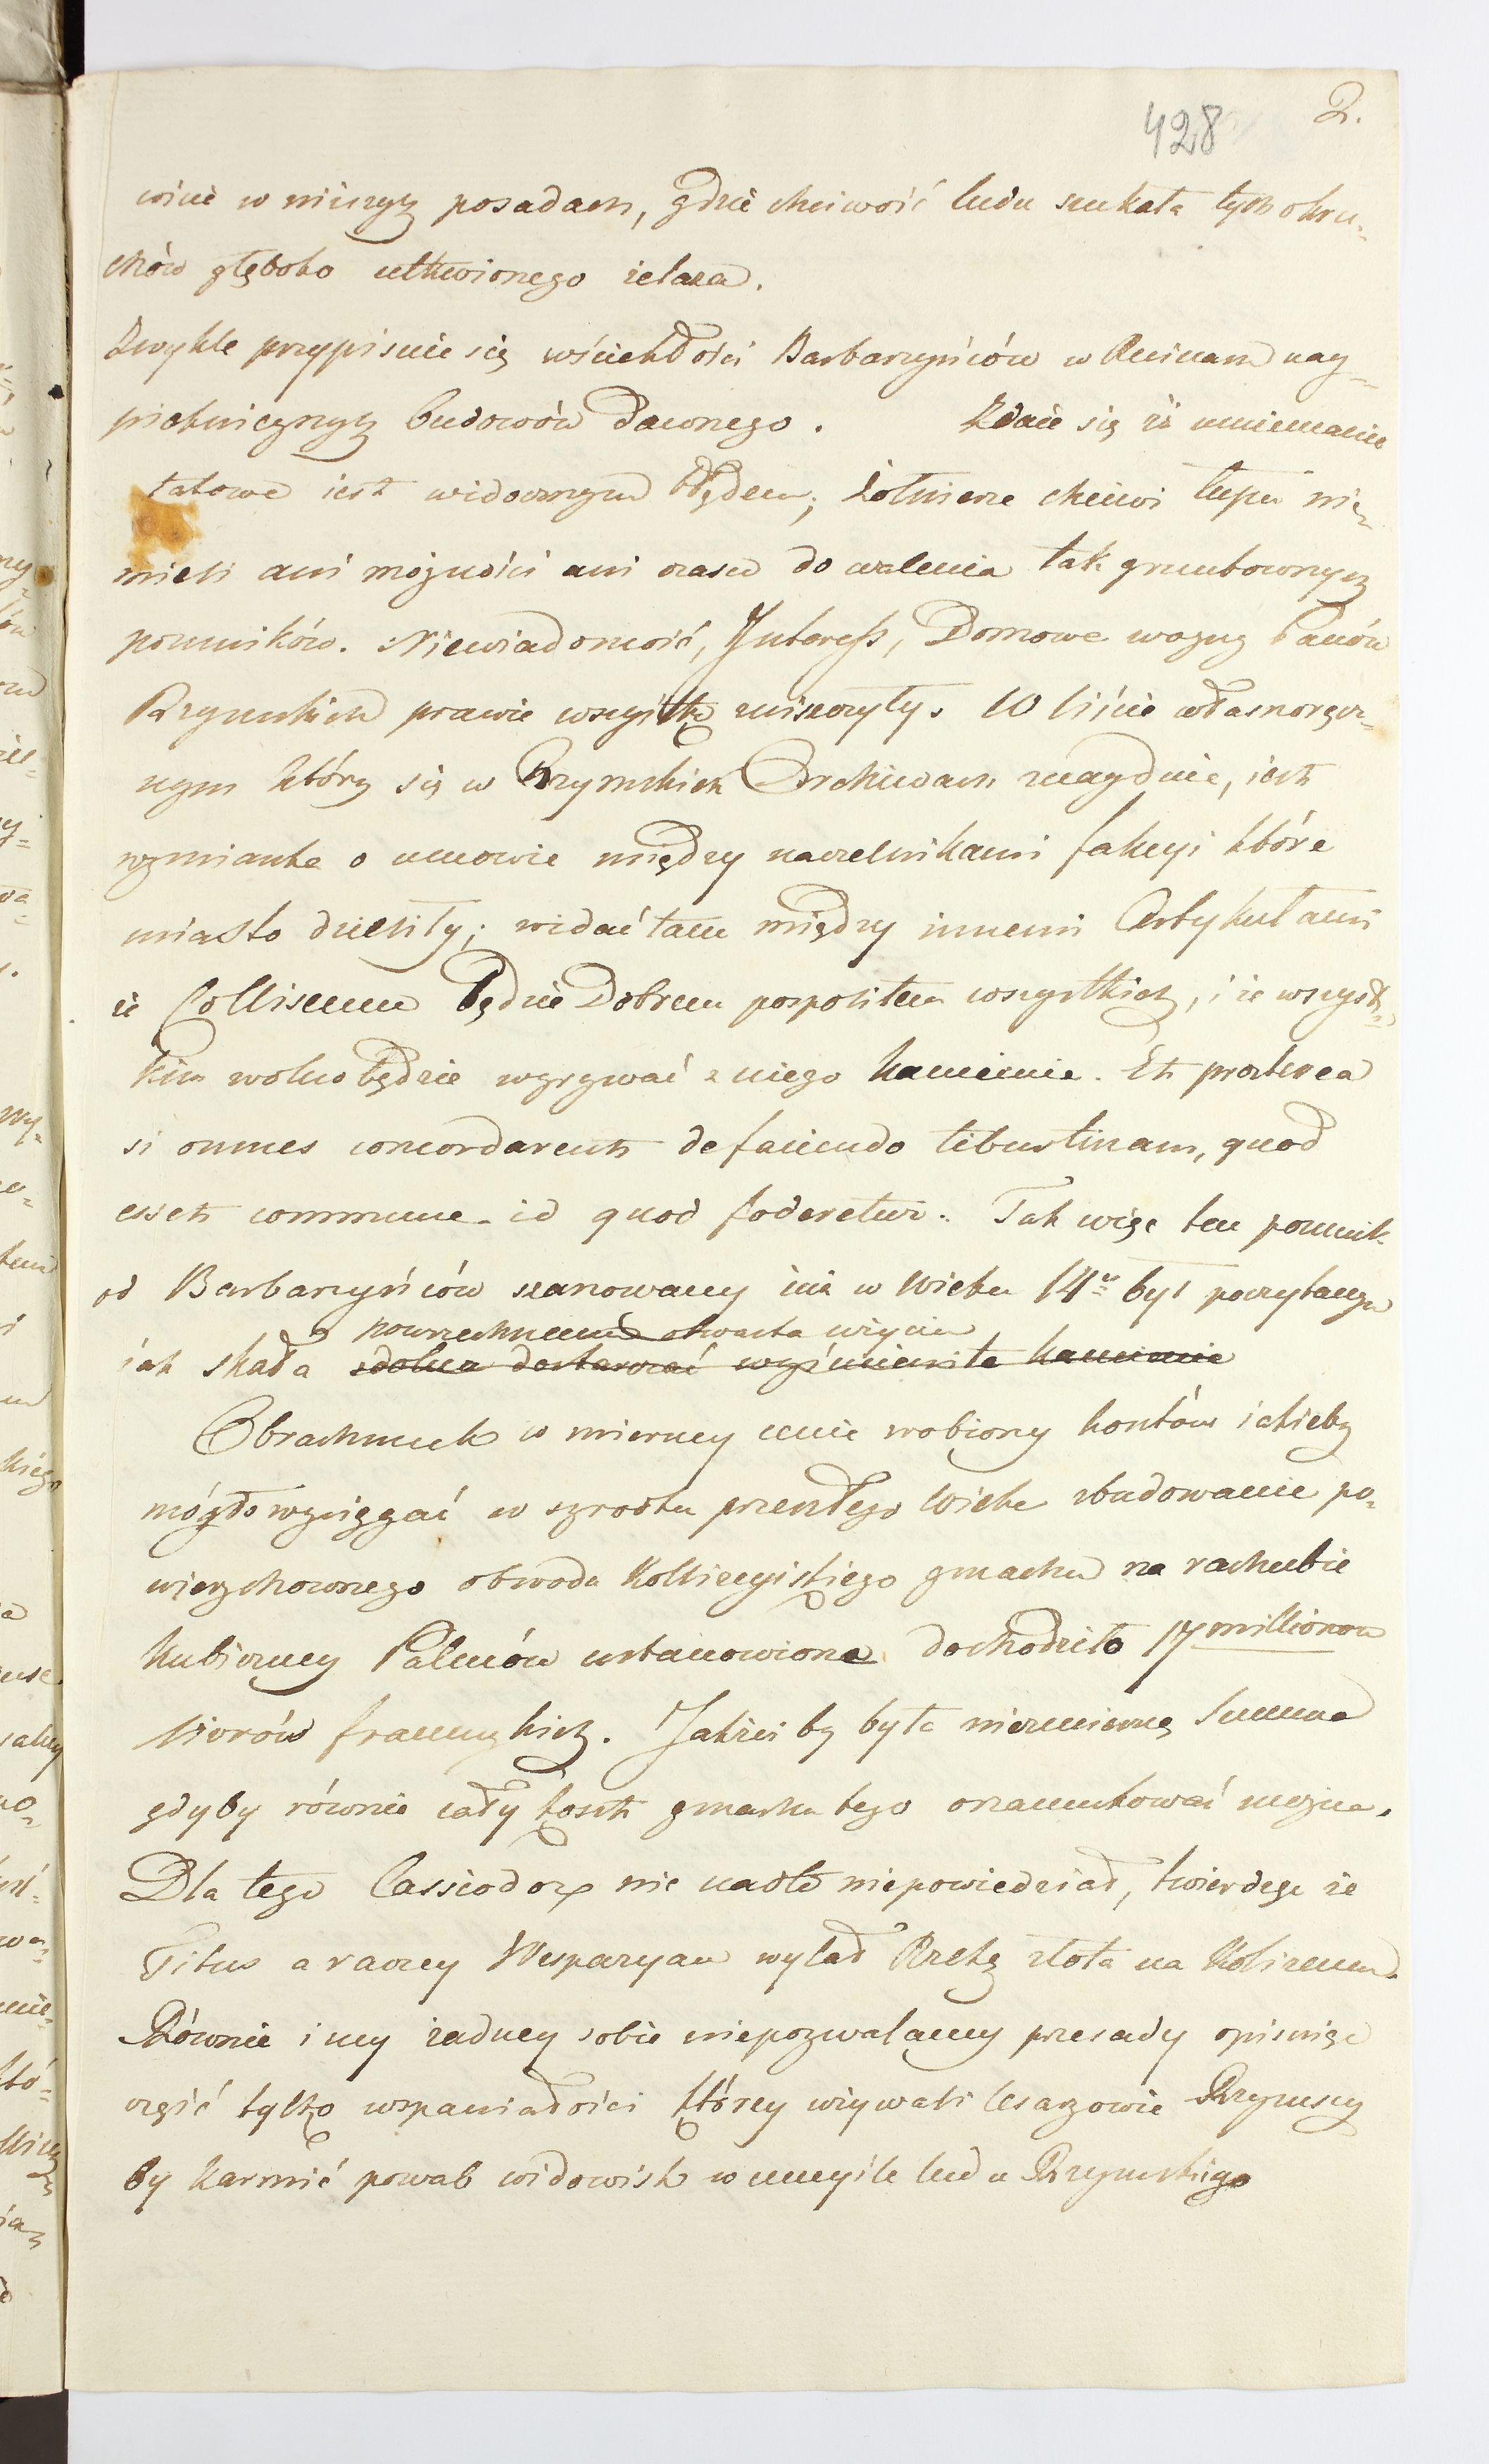 428 2.
wicie w niższych posadach, gdzie chciwość ludu szukała tych okru-
chów głęboko utkwionego żelaza.
Zwykle przypisuie się wściekłości Barbarzyńców w Ruinach nay-
pięknieyszych budowów Dawnego. Zdaie się iż mniemanie
takowe iest widocznym błędem; żołnierze chciwi łupu nie-
mieli ani możności ani czasu do walenia tak gruntownych
pomników. Niewiadomość, Interess, Domowe woyny Panów
Rzymskich prawie wszystko zniszczyły. W liście własnoręcz-
nym który się w Rzymskich Archiwach znayduie, iest
wzmianka o umowie między naczelnikami fakcyi które
miasto dzieliły; widać tam między innemi Artykułami
iż Colliseum będzie Dobrem pospolitem wszystkich, i że wszyst-
kim wolno będzie wyrywać z niego kamienie. Et praeterea
si omnes concordarent de faciendo tiburtinam, quod
esset commune id quod foderetur. Tak więc ten pomnik
od Barbarzyńców szanowany iuż w wieku 14u był poczytanym
powszechnemu otwarta użyciu
iak skała zdolna dostarczać wyśmienite kamienie
Obrachunek w mierney cenie zrobiony kosztów iakieby
mógło wyciągać w szrodku przeszłego wieku zbudowanie po-
wierzchownego obwodu Kollizeyskiego gmachu na rachubie
Kubiczney Palmów ustanowiona dochodziło 17 millionow
liwrów francuzkich. Jakżeż by była niezmierną Summa
gdyby równie cały koszt gmachu tego oszacować można.
Dla tego Cassiodor nic nadto niepowiedział, twierdząc że
Titus a raczey Wespazyan wylał Rzekę złota na Kolizeum.
Równie i my żadney sobie niepozwalamy przesady opisuiąc
część tylko wspaniałości którey używali Cesarzowie Rzymscy
by karmić powab widowisk w umyśle ludu Rzymskiego